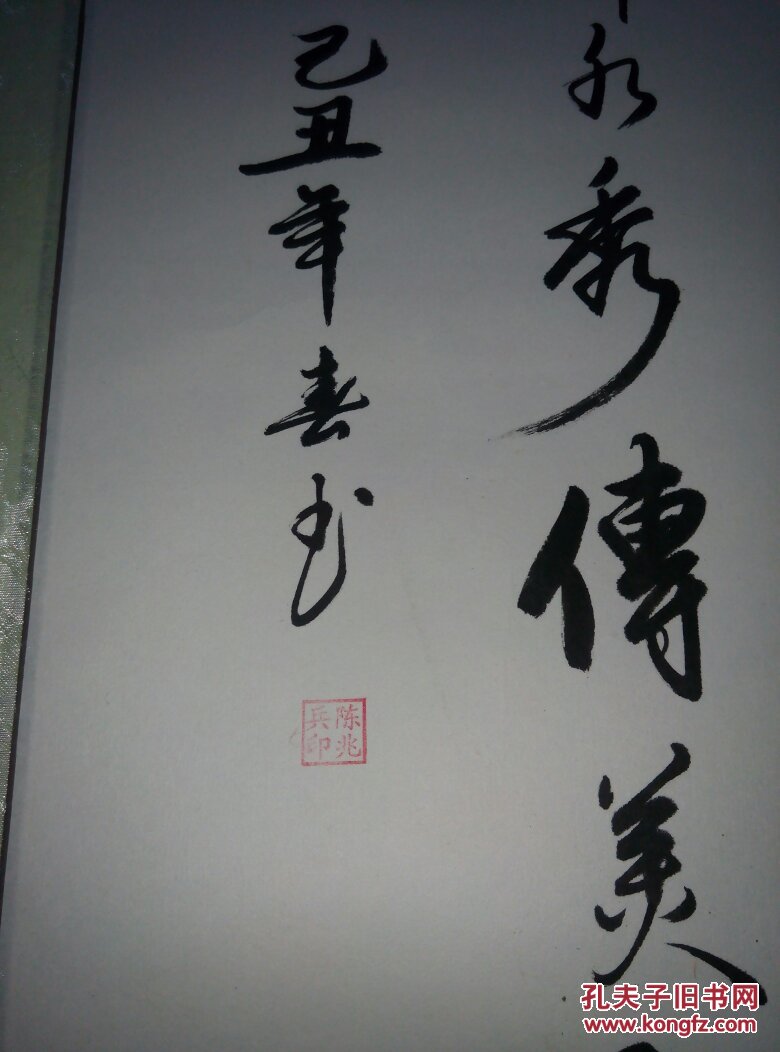 永秀傳美
己丑年春书
陈兆兵印
孔夫子旧书网
www.kongfz.com